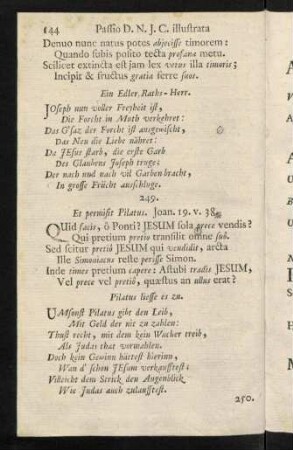 144 Passio D. N. J. C. illustrata
Denuo nunc natus potes abjecisse timorem:
Quando subis posito tecta profana metu.
Scilicet extincta est jam lex vetus illa timoris;
Incipit & fructus gratia ferre suos.
Ein Edler Raths-Herr.
JOseph nun voller Freyheit ist,
Die Forcht in Muth verkehret:
Das G'saz der Forcht ist ausgewischt,
Das Neu die Liebe nähret:
Da JEsus starb, die erste Garb
Des Glaubens Joseph truge;
Der nach und nach vil Garben bracht,
In grosse Frücht ausschluge.
249.
Et permisit Pilatus. Joan. 19. v. 38.
QUid facis, ô Ponti? JESUM sola prece vendis?
Qui pretium pretio transilit omne suô.
Sed scitur pretiô JESUM qui vendidit, arcta
Ille Simoniacus reste perisse Simon.
Inde times pretium capere: Astubi tradis JESUM,
Vel prece vel pretiô, quæstus an ullus erat?
Pilatus liesse es zu.
UMsonst Pilatus gibt den Leib,
Mit Geld der nit zu zahlen:
Thust recht, mit dem kein Wucher treib,
Als Judas that vormahlen.
Doch kein Gewinn hättest hierinn,
Wan d' schon JEsum verkaufftest:
Villeicht dem Strick den Augenblick
Wie Judas auch zulauffest.
250.